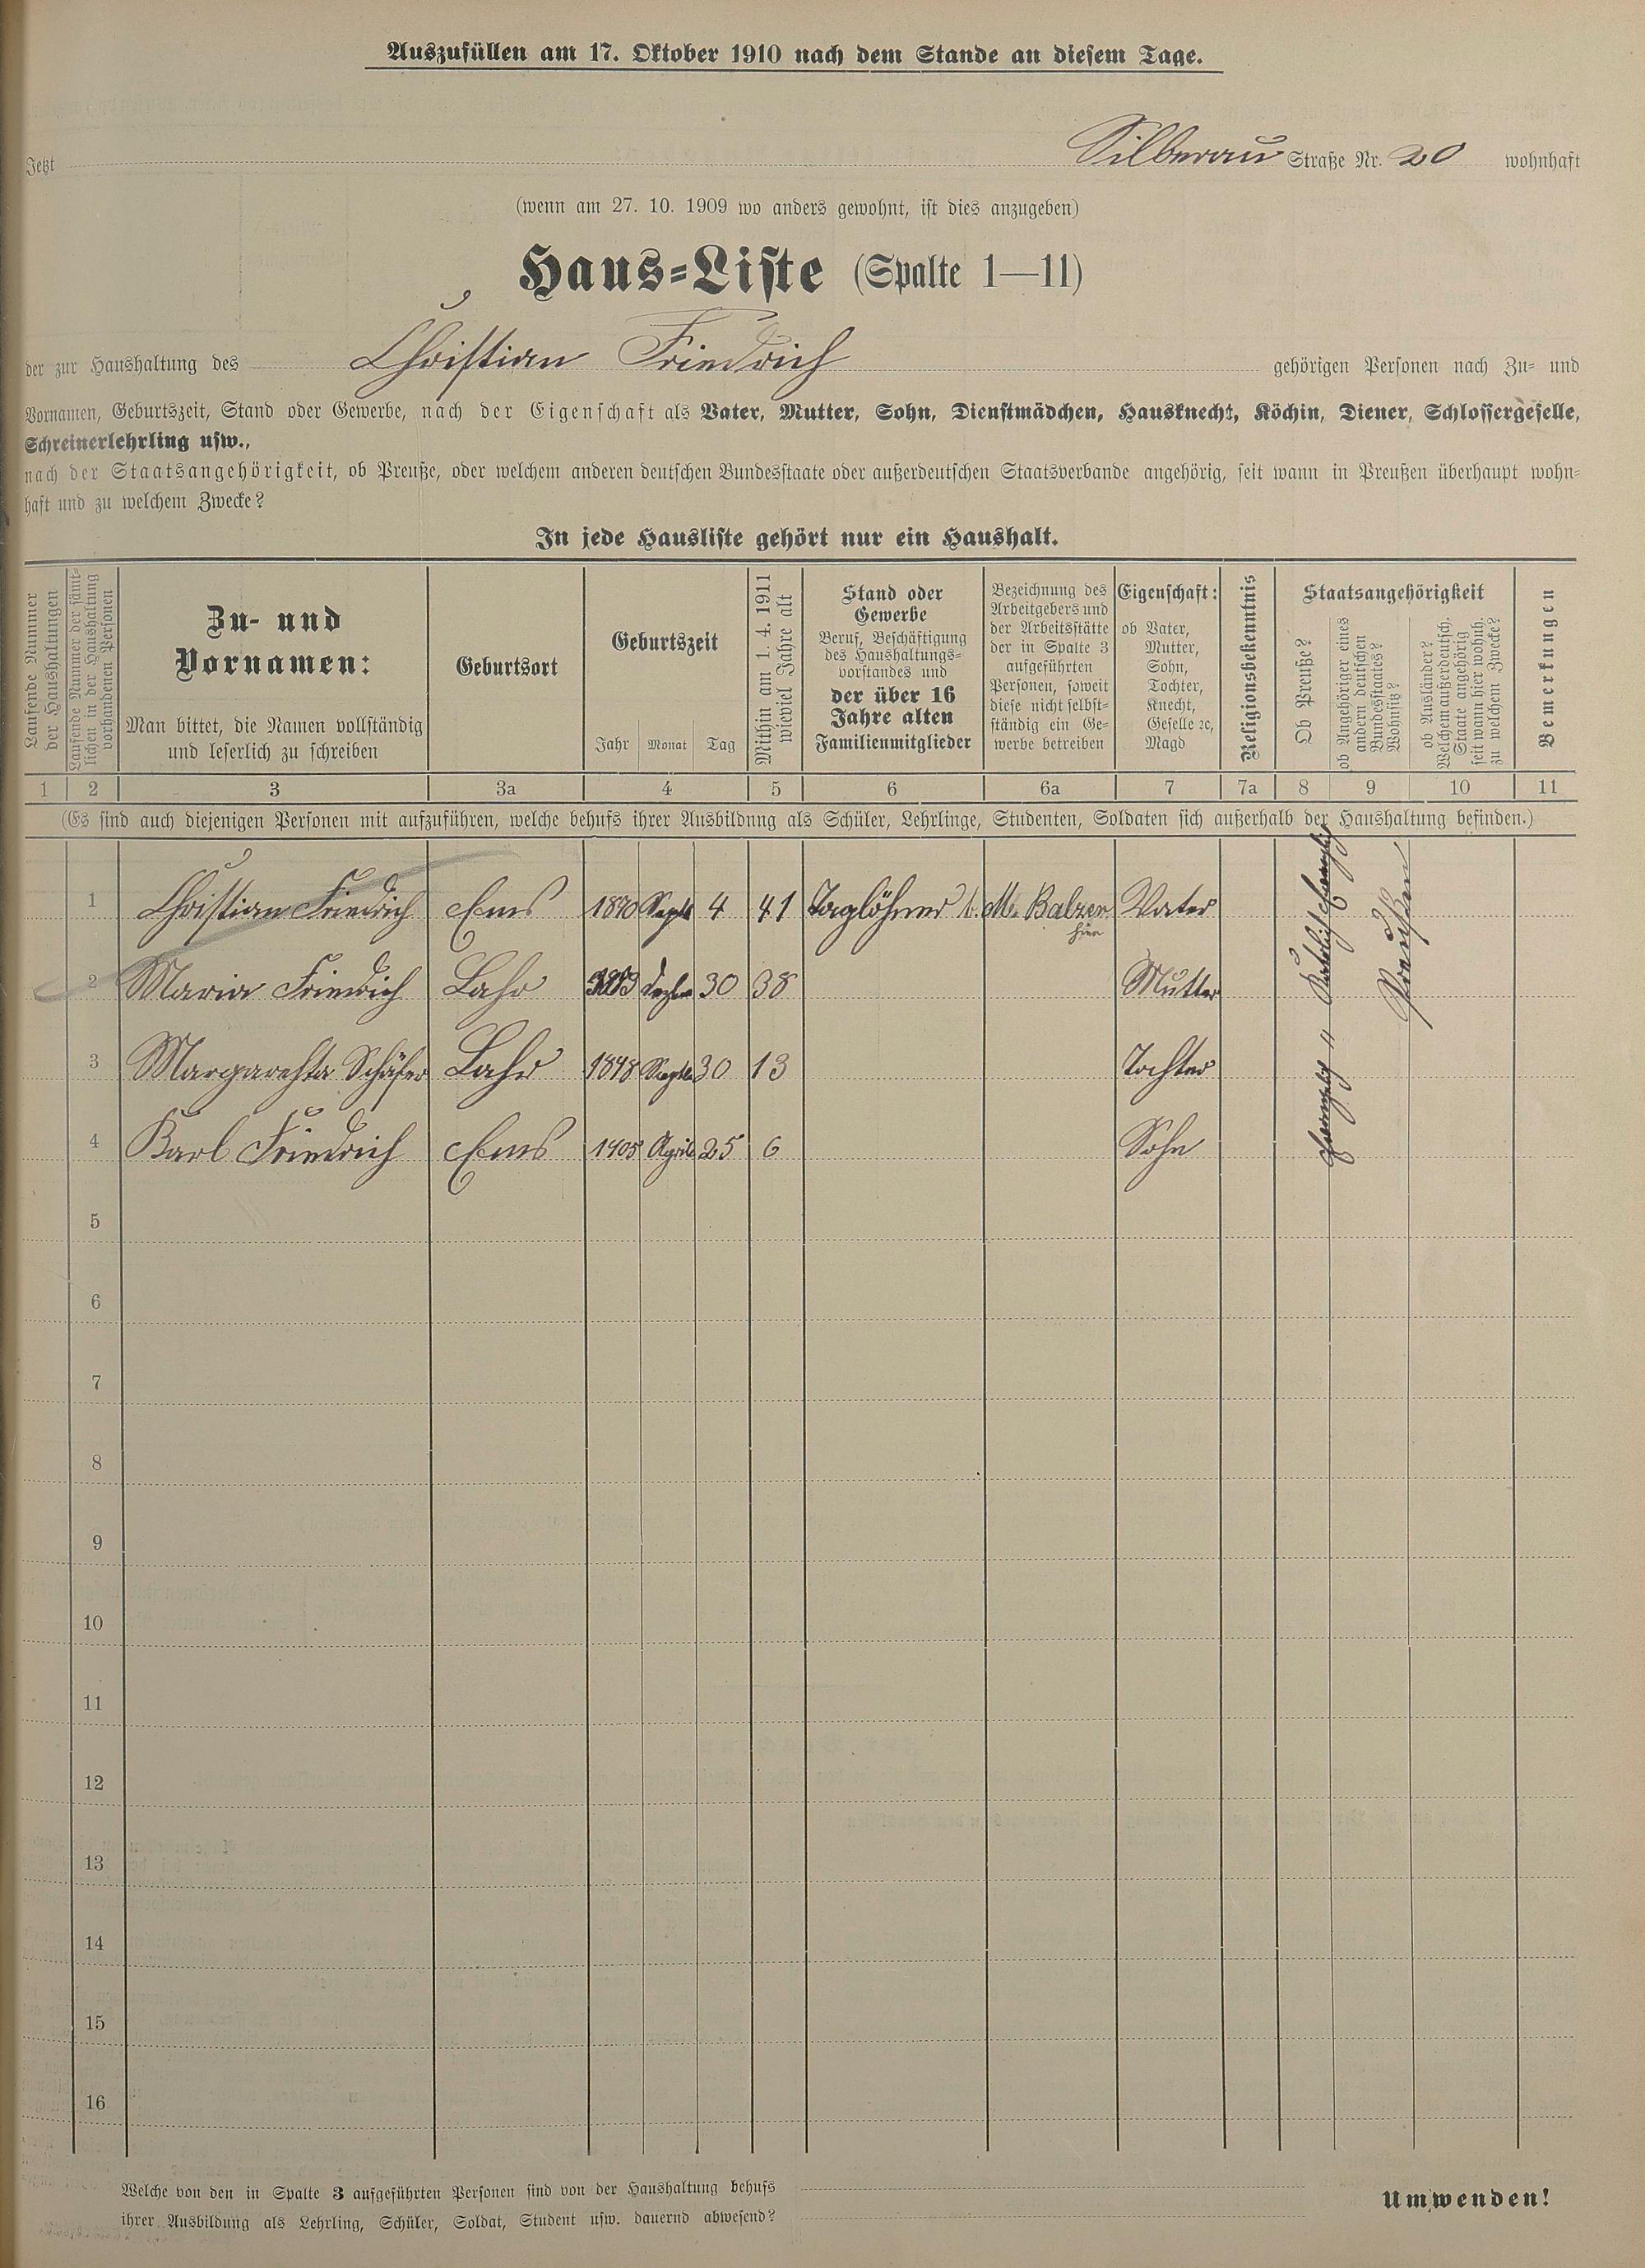 Auszufüllen am 17. Oktober 1910 nach dem Stande an diesem Tage.
Jetzt Silberau Straße Nr. 20 wohnhaft
(wenn am 27. 10. 1909 wo anders gewohnt, ist dies anzugeben)
Haus=Liste (Spalte 1—11)
der zur Haushaltung des Christian Friedrich gehörigen Personen nach Zu= und
Vornamen, Geburtszeit, Stand oder Gewerbe, nach der Eigenschaft als Vater, Mutter, Sohn, Dienstmädchen, Hausknecht, Köchin, Diener, Schlossergeselle,
Schreinerlehrling usw.,
nach der Staatsangehörigkeit, ob Preuße, oder welchem anderen deutschen Bundesstaate oder außerdeutschen Staatsverbande angehörig, seit wann in Preußen überhaupt wohn=
haft und zu welchem Zwecke?
In jede Hausliste gehört nur ein Haushalt.
Laufende Nummer
der Haushaltungen
Laufende Nummer der sämt=
lichen in der Haushaltung
vorhandenen Personen
Zu- und
Vornamen:
Man bittet, die Namen vollständig
und leserlich zu schreiben
Geburtsort
Geburtszeit
Jahr Monat Tag
Mithin am 1. 4. 1911
wieviel Jahre alt
Stand oder
Gewerbe
Beruf, Beschäftigung
des Haushaltungs=
vorstandes und
der über 16
Jahre alten
Familienmitglieder
Bezeichnung des
Arbeitgebers und
der Arbeitsstätte
der in Spalte 3
aufgeführten
Personen, soweit
diese nicht selbst=
ständig ein Ge=
werbe betreiben
Eigenschaft:
ob Vater,
Mutter,
Sohn,
Tochter,
Knecht,
Geselle ꝛc,
Magd
Religionsbekenntnis
Staatsangehörigkeit
Ob Preuße?
ob Angehöriger eines
andern deutschen
Bundesstaates?
Wohnsitz?
ob Ausländer?
Welchem außerdeutsch.
Staate angehörig
seit wann hier wohnh.
zu welchem Zwecke?
Bemerkungen
1 2 3 3a 4 5 6 6a 7 7a 8 9 10 11
(Es sind auch diejenigen Personen mit aufzuführen, welche behufs ihrer Ausbildung als Schüler, Lehrlinge, Studenten, Soldaten sich außerhalb der Haushaltung befinden.)
1 Christian Friedrich Ems 1870 Septb 4 41 Taglöhner b. M. Balzer Vater
hier
2 Maria Friedrich Lahr Dezbr 30 38 Mutter
3 Margarehta Schäfer Lahr Septb 30 13 Tochter
4 Karl Friedrich Ems 1905 April 25 6 Sohn
Preußen
5
6
7
8
9
10
11
12
13
14
15
16
Welche von den in Spalte 3 aufgeführten Personen sind von der Haushaltung behufs
ihrer Ausbildung als Lehrling, Schüler, Soldat, Student usw. dauernd abwesend?
Umwenden!